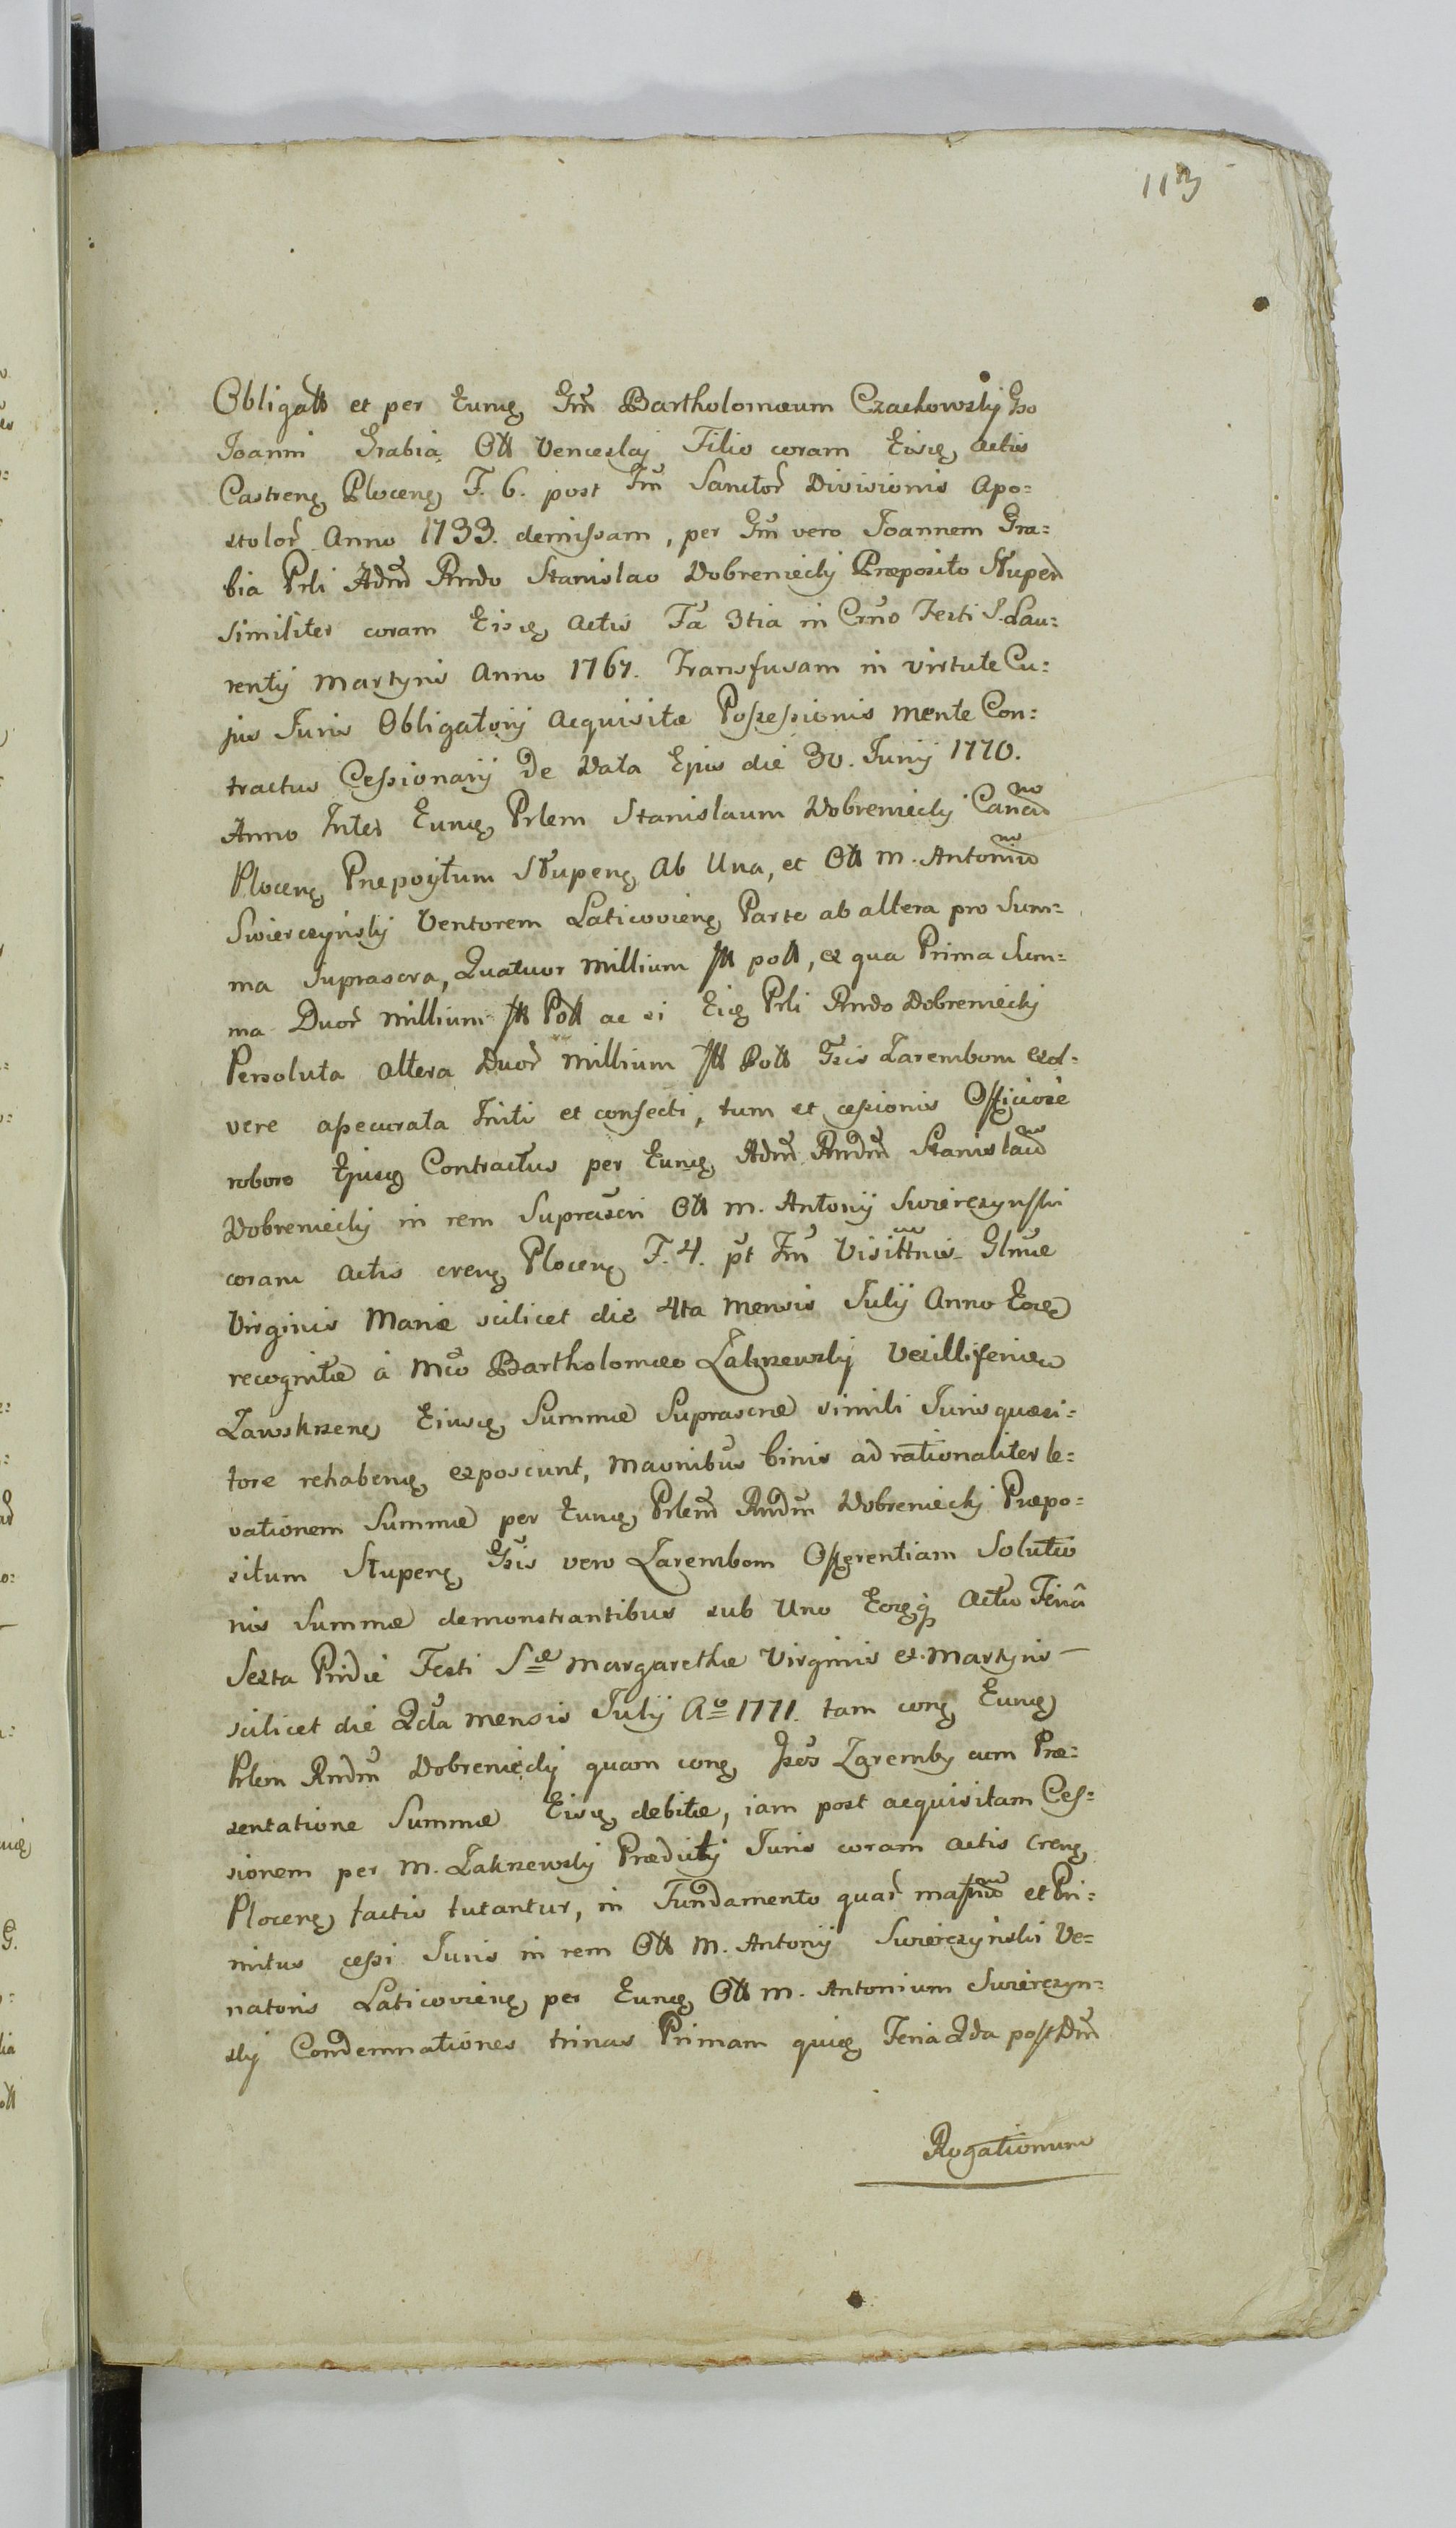 113
Obligatt et per Eund Gm Bartholomæum Czachowsky Gso
Joanni Grabia Ott Venceslaj Filio coram Eisd actis
Castren Plocen F. 6. post Fm Sanctor Divisionis Apo=
stolor Anno 1733. demissam, per Gm vero Joannem Gra=
bia Prli Adm Rndo Stanislao Dobreniecky Præposito Stupen
similiter coram Eisd actis Fa 3tia in Crno Festi S. Lau=
rentij martyris Anno 1767. Transfusam in virtute Cu=
jus Juris Obligatorij acquisitæ Possessionis mente Con=
tractus Cessionarij De Data Ejus die 30. Junij 1770.
Anno Inter Eund Prlem Stanislaum Dobreniecky Canon
Plocen Prepoytum Stupen Ab Una, et Ott m. Antonium
Swierczynsky Ventorem Laticovien Parte ab altera pro Sum=
ma suprascra, Quatuor millium fll poll, ex qua Prima Sum=
ma Duor millium fll Poll ac si Eid Prli Rndo Dobreniecky
Persoluta altera Duor millium fll Poll Gsis Zarembom exol=
vere assecurata Initi et confecti, tum et cessionis Officiose
robore Ejusd Contractus per Eund Adm Rndm Stanislaum
Dobreniecky in rem Suprascri Ott m. Antonij Swierczynski
coram actis cren Plocen F. 4. pt Fm Visittnis Glnæ
Virginis Mariæ scilicet die 4ta mensis Julij Anno Eod
recognitæ à Mco Bartholomæo Zakrzewsky Vexillifero
Zawskrzen Eiusd Summæ Suprascræ simili Juris quæsi=
tore rehaben exposcunt, maonibus binis ad rationaliter le=
vationem Summæ per Eund Prlem Rndm Dobreniecky Præpo=
situm Stupen Gsis vero Zarembom Offerentiam Solutio
nis Summæ demonstrantibus sub Uno Eodq actu Feriâ
Sexta Pridie Festi S æ Margarethæ Virginis et Martyris —
scilicet die 2da mensis Julij Ao 1771. tam con Eund
Prlem Rndm Dobreniecky quam con Gsos Zaremby cum Præ=
sentatione Summæ Eisd debitæ, iam post acquisitam Ces=
sionem per M. Zakrzewsky Prædicty Juris coram actis Cren
Plocen factis tutantur, in Fundamento quar et Pri=
mitus cessi Juris in rem Ott M. Antonij Swierczynski Ve=
natoris Laticovien per Eund Ott m. Antonium Swierczyn=
sky Condemnationes trinas Primam quid Feria 2da post Dm
Rogationum